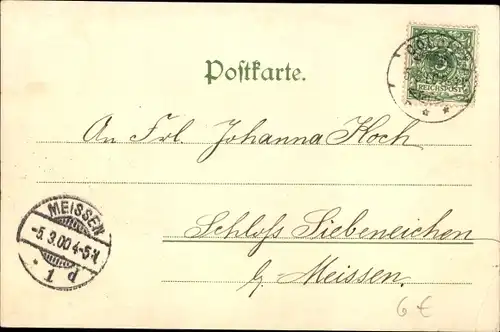 Postkarte.
REICHSPOST
An Frl. Johanna Koch
MEISSEN
-5.3.00 4-5N
* 1 d
Schloss Siebeneichen
b/ Meissen.
6 €